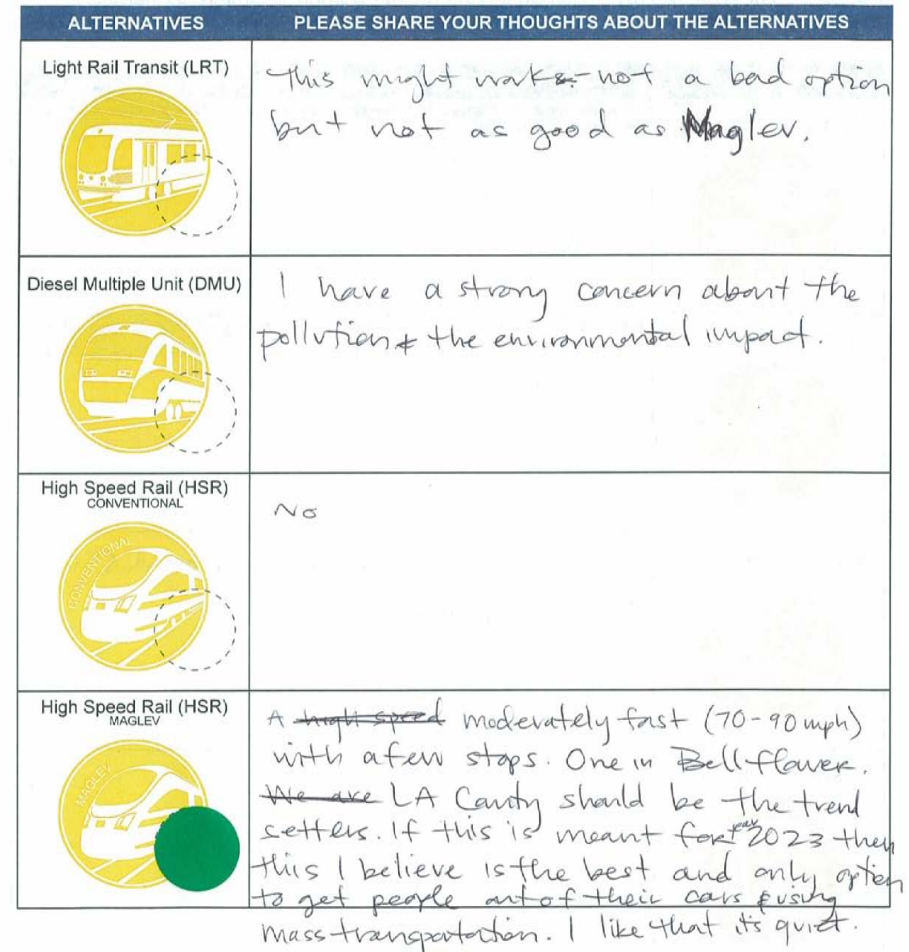 ALTERNATIVES
PLEASE SHARE YOUR THOUGHTS ABOUT THE ALTERNATIVES
Light Rail Transit (LRT)
This might work - not a bad option
but not as good as Maglev.
Diesel Multiple Unit (DMU)
I have a strong concern about the
pollution & the environmental impact.
High Speed Rail (HSR)
CONVENTIONAL
CONVENTIONAL
No
High Speed Rail (HSR)
MAGLEV
MAGLEV
A high speed moderately fast (70-90 mph)
with a few stops. One in Bellflower.
We are LA County should be the trend
setters. If this is meant for year 2023 then
this I believe is the best and only option
to get people out of their cars & using
mass transportation. I like that it's quiet.